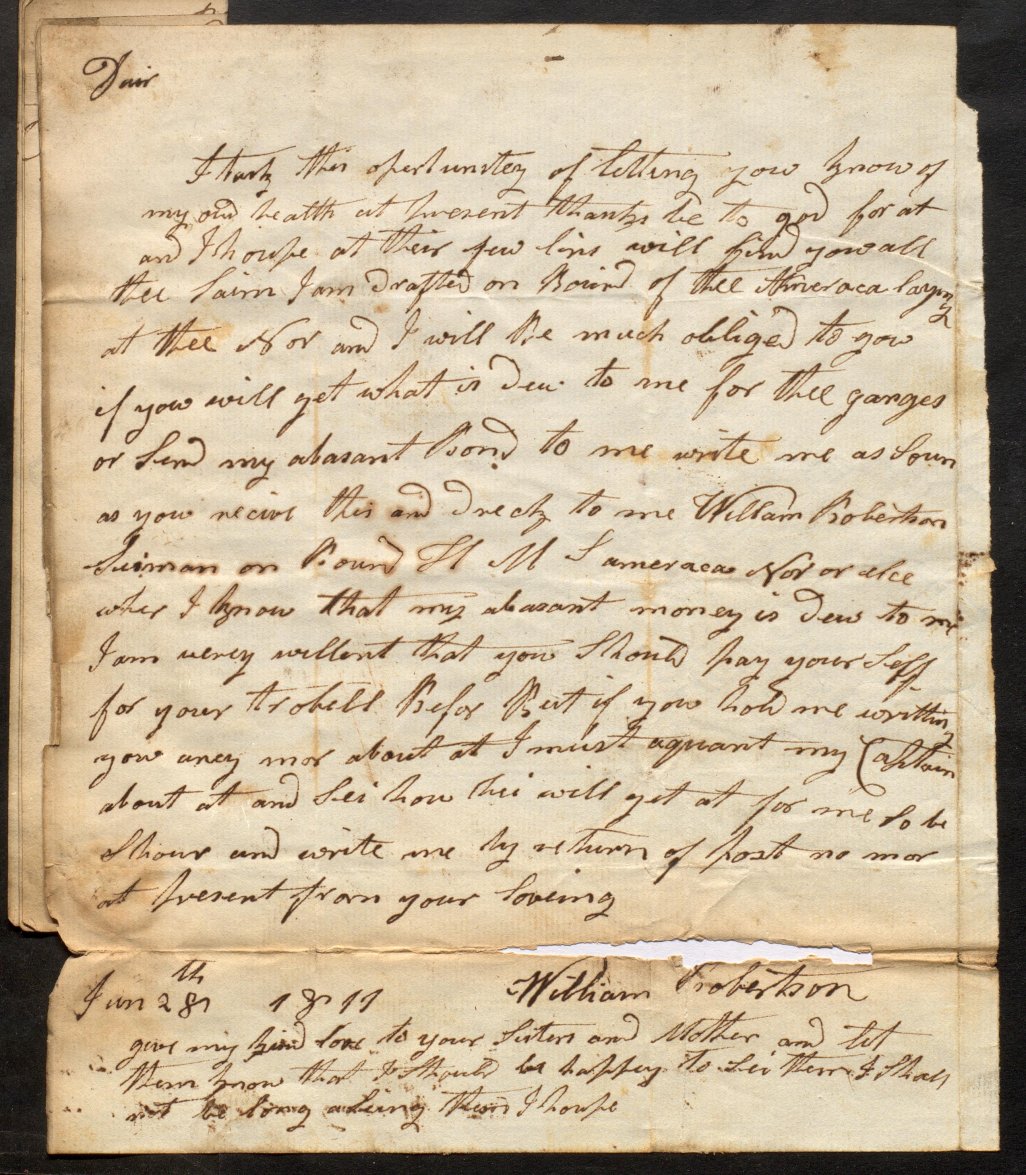 Dair
I tack this opertunitey of letting yow know of
my owd health at present thanks be to god for at
and I houpe at their few lins will find yow all
thee Saim I am drafted on Bourd of thee Ameraca laying
at thee Nor and I will Be much obliged to yow
if yow will get what is dew to me for thee ganges
or Send my abasant Bond to me write me as Soun
as yow recive this and dreck to me William Robertson
Seiman on Bourd H M S ameraca Nor or else
wher I know that my abasant money is dew to me
I am verey willent that yow Should pay your Self
for your trobell Befor But if yow hold me writting
yow aney mor about at I must aquant my Captain
about at and Sei how hei will get at for me So be
Shour and write me by return of post no mor
at present from your loveing
William Robertson
Jun 28th 1811
give my kind love to your Sisters and Mother and let
them know that I Should be happey to Sei them I Shall
not be long a Seing them I houpe